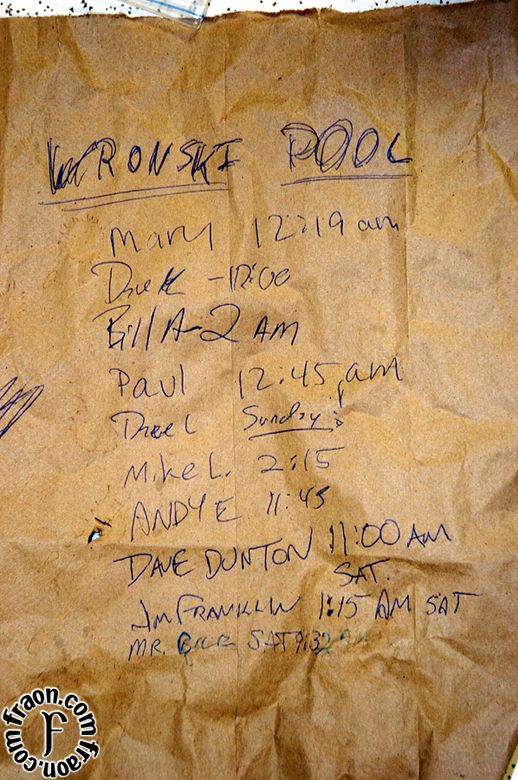 WRONSKI POOL
Mary 12:19 am
Derek -12:00
Bill A-2 AM
Paul 12:45 am
Sunday
Mike L. 2:15
ANDY E 11:45
DAVE DUNTON 11:00 AM
SAT.
Jim FRANKLIN 1:15 AM SAT
MR. SAT 9:32
fraon.com fraon.com fraon.com
F